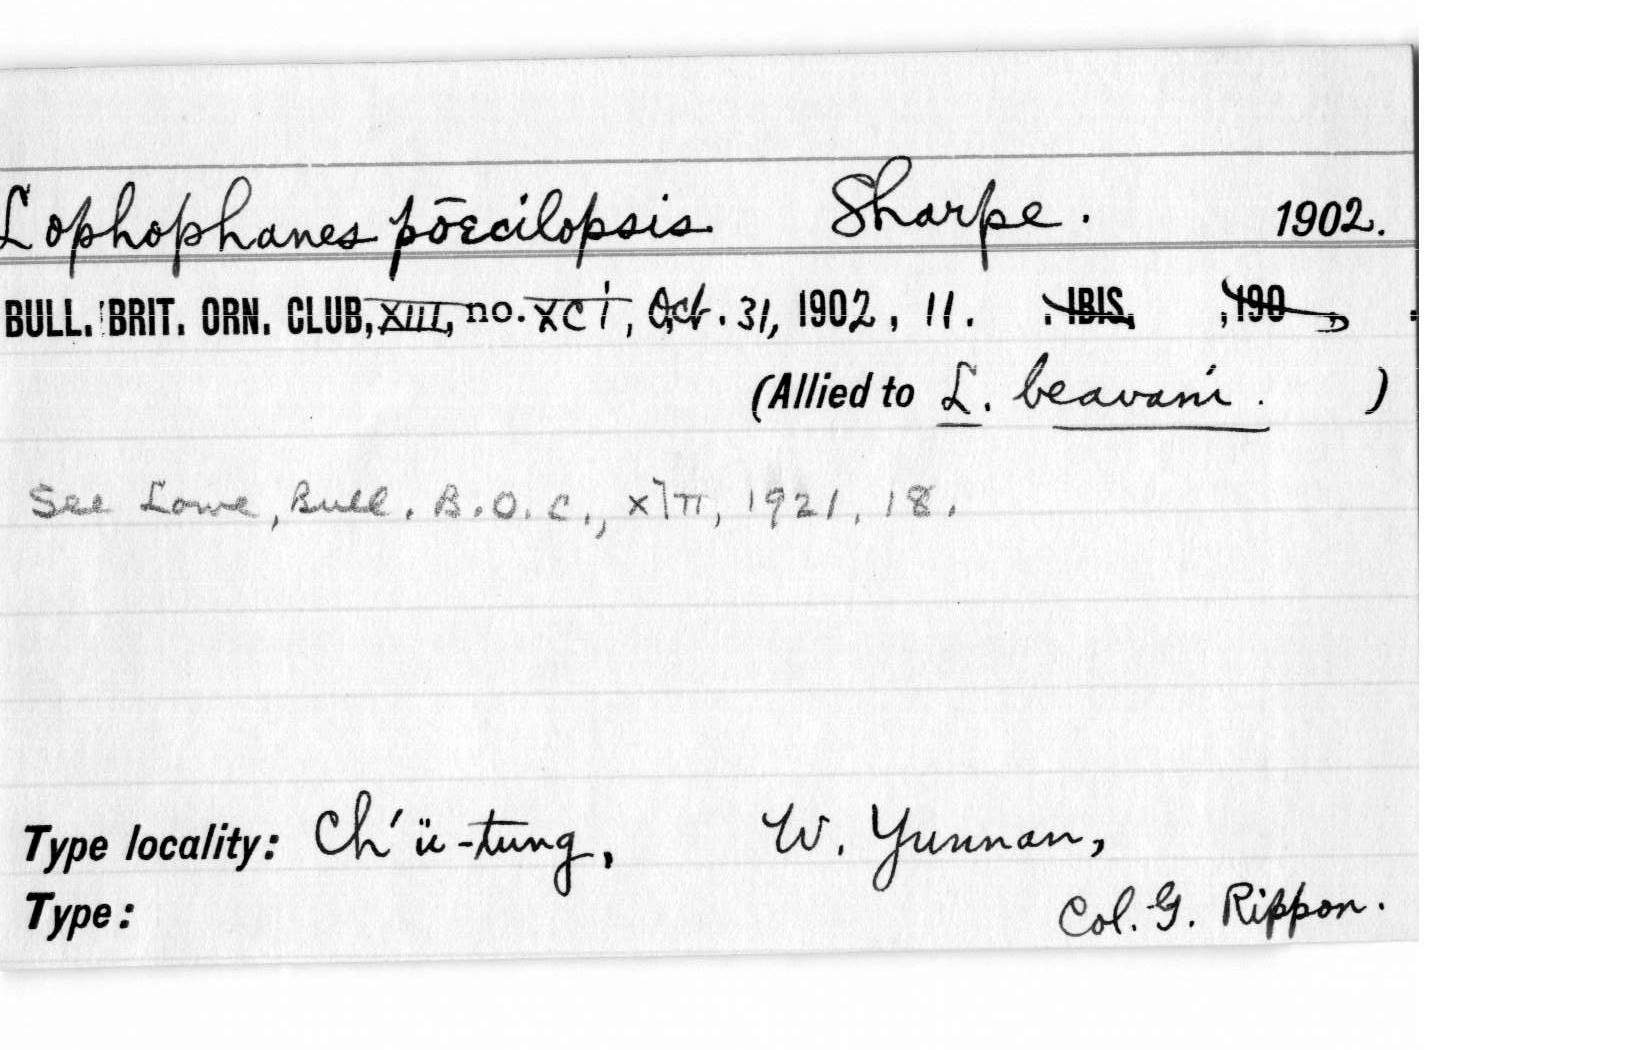 Lophophanes pōecilopsis Sharpe. 1902.
BULL. BRIT. ORN. CLUB, XIII, no. XCI, Oct. 31, 1902, 11. . IBIS, , 190 , .
(Allied to L. beavani. )
See Lowe, Bull. B.O.C., , 1921, 18.
Type locality: Ch'ü-tung, W. Yunnan,
Type: Col. G. Rippon.